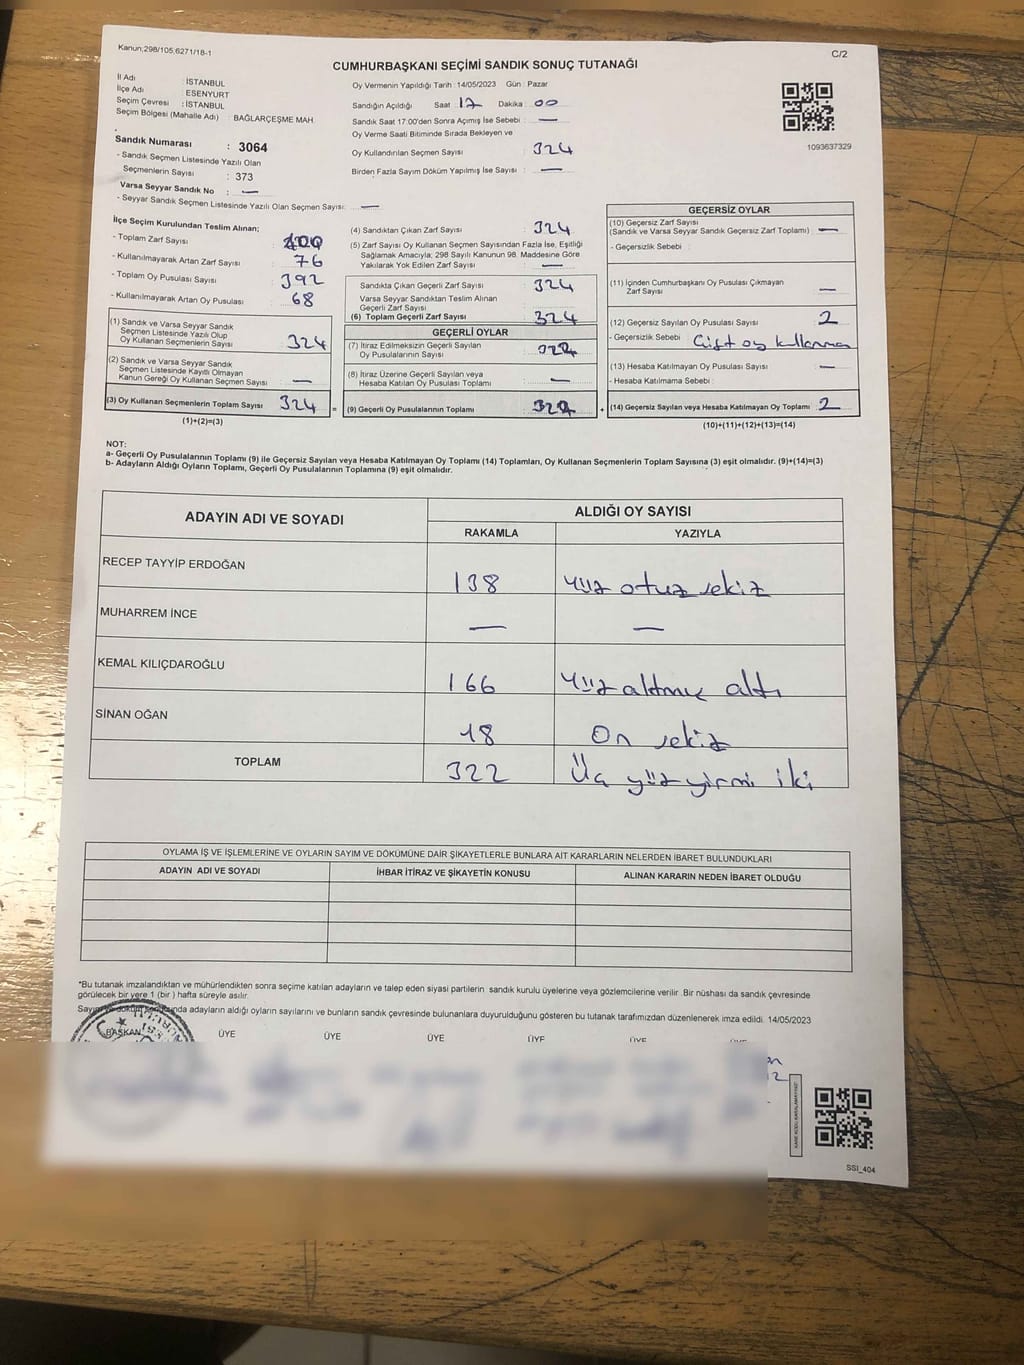 Kanun;298/105,6271/18-1
C/2
CUMHURBAŞKANI SEÇİMİ SANDIK SONUÇ TUTANAĞI
İl Adı : İSTANBUL
İlçe Adı : ESENYURT
Seçim Çevresi : İSTANBUL
Seçim Bölgesi (Mahalle Adı) : BAĞLARÇEŞME MAH.
Oy Vermenin Yapıldığı Tarih :14/05/2023 Gün : Pazar
Sandığın Açıldığı Saat 17 Dakika : 00
Sandık Saat 17:00'den Sonra Açımış İse Sebebi : —
Oy Verme Saati Bitiminde Sırada Bekleyen ve
Oy Kullandırılan Seçmen Sayısı : 324
Birden Fazla Sayım Döküm Yapılmış İse Sayısı : —
1093637329
Sandık Numarası : 3064
- Sandık Seçmen Listesinde Yazılı Olan
Seçmenlerin Sayısı : 373
Varsa Seyyar Sandık No : —
- Seyyar Sandık Seçmen Listesinde Yazılı Olan Seçmen Sayısı: —
İlçe Seçim Kurulundan Teslim Alınan;
- Toplam Zarf Sayısı : 400
- Kullanılmayarak Artan Zarf Sayısı : 76
- Toplam Oy Pusulası Sayısı : 392
- Kullanılmayarak Artan Oy Pusulası : 68
(1) Sandık ve Varsa Seyyar Sandık
Seçmen Listesinde Yazılı Olup
Oy Kullanan Seçmenlerin Sayısı : 324
(2) Sandık ve Varsa Seyyar Sandık
Seçmen Listesinde Kayıtlı Olmayan
Kanun Gereği Oy Kullanan Seçmen Sayısı : —
(3) Oy Kullanan Seçmenlerin Toplam Sayısı : 324
(1)+(2)=(3)
(4) Sandıktan Çıkan Zarf Sayısı : 324
(5) Zarf Sayısı Oy Kullanan Seçmen Sayısından Fazla İse, Eşitliği
Sağlamak Amacıyla; 298 Sayılı Kanunun 98. Maddesine Göre
Yakılarak Yok Edilen Zarf Sayısı : —
Sandıkta Çıkan Geçerli Zarf Sayısı : 324
Varsa Seyyar Sandıktan Teslim Alınan
Geçerli Zarf Sayısı :
(6) Toplam Geçerli Zarf Sayısı : 324
GEÇERLİ OYLAR
(7) İtiraz Edilmeksizin Geçerli Sayılan
Oy Pusulalarının Sayısı : 322
(8) İtiraz Üzerine Geçerli Sayılan veya
Hesaba Katılan Oy Pusulası Toplamı : —
= (9) Geçerli Oy Pusulalarının Toplamı : 322 +
GEÇERSİZ OYLAR
(10) Geçersiz Zarf Sayısı
(Sandık ve Varsa Seyyar Sandık Geçersiz Zarf Toplamı) : —
- Geçersizlik Sebebi :
(11) İçinden Cumhurbaşkanı Oy Pusulası Çıkmayan
Zarf Sayısı : —
(12) Geçersiz Sayılan Oy Pusulası Sayısı : 2
- Geçersizlik Sebebi : Çift oy kullanma
(13) Hesaba Katılmayan Oy Pusulası Sayısı : —
- Hesaba Katılmama Sebebi :
(14) Geçersiz Sayılan veya Hesaba Katılmayan Oy Toplamı : 2
(10)+(11)+(12)+(13)=(14)
NOT:
a- Geçerli Oy Pusulalarının Toplamı (9) ile Geçersiz Sayılan veya Hesaba Katılmayan Oy Toplamı (14) Toplamları, Oy Kullanan Seçmenlerin Toplam Sayısına (3) eşit olmalıdır. (9)+(14)=(3)
b- Adayların Aldığı Oyların Toplamı, Geçerli Oy Pusulalarının Toplamına (9) eşit olmalıdır.
ADAYIN ADI VE SOYADI
ALDIĞI OY SAYISI
RAKAMLA YAZIYLA
RECEP TAYYİP ERDOĞAN 138 yüz otuz sekiz
MUHARREM İNCE — —
KEMAL KILIÇDAROĞLU 166 yüz altmış altı
SİNAN OĞAN 18 On sekiz
TOPLAM 322 Üç yüz yirmi iki
OYLAMA İŞ VE İŞLEMLERİNE VE OYLARIN SAYIM VE DÖKÜMÜNE DAİR ŞİKAYETLERLE BUNLARA AİT KARARLARIN NELERDEN İBARET BULUNDUKLARI
ADAYIN ADI VE SOYADI İHBAR İTİRAZ VE ŞİKAYETİN KONUSU ALINAN KARARIN NEDEN İBARET OLDUĞU
*Bu tutanak imzalandıktan ve mühürlendikten sonra seçime katılan adayların ve talep eden siyasi partilerin sandık kurulu üyelerine veya gözlemcilerine verilir. Bir nüshası da sandık çevresinde
görülecek bir yere 1 (bir ) hafta süreyle asılır.
adayların aldığı oyların sayılarını ve bunların sandık çevresinde bulunanlara duyurulduğunu gösteren bu tutanak tarafımızdan düzenlenerek imza edildi. 14/05/2023
BAŞKAN ÜYE ÜYE ÜYE ÜYE ÜYE
SSI_404